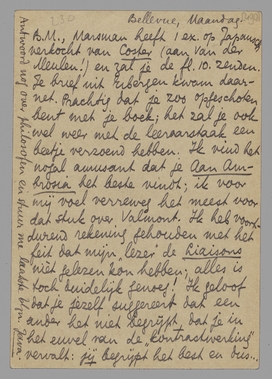 230
Bellevue, Maandag.
B.M., Marsman heeft 1 ex. op Japansch
verkocht van Coster (aan Van der
Meulen!) en zal je de fl. 10. zenden.
Je brief uit Eibergen kwam daar-
net. Prachtig dat je zoo opgeschoten
bent met je boek; het zal je ook
wel weer met de leeraarstaak een
beetje verzoend hebben. Ik vind het
nogal amusant dat je Aan Am-
brosia het beste vindt; ik voor
mij voel verreweg het meest voor
dat stuk over Valmont. Ik heb voort-
durend rekening gehouden met het
feit dat mijn "lezer" de Liaisons
niet gelezen kon hebben; alles is
toch duidelijk genoeg! Ik geloof
dat je jezelf suggereert dat een
ander het niet begrijpt, dat je in
het euvel van de "kontrastwerking"
vervalt: jij begrijpt het best en dus...
Antwoord nog over philosofen en stuur me laatste blzn.